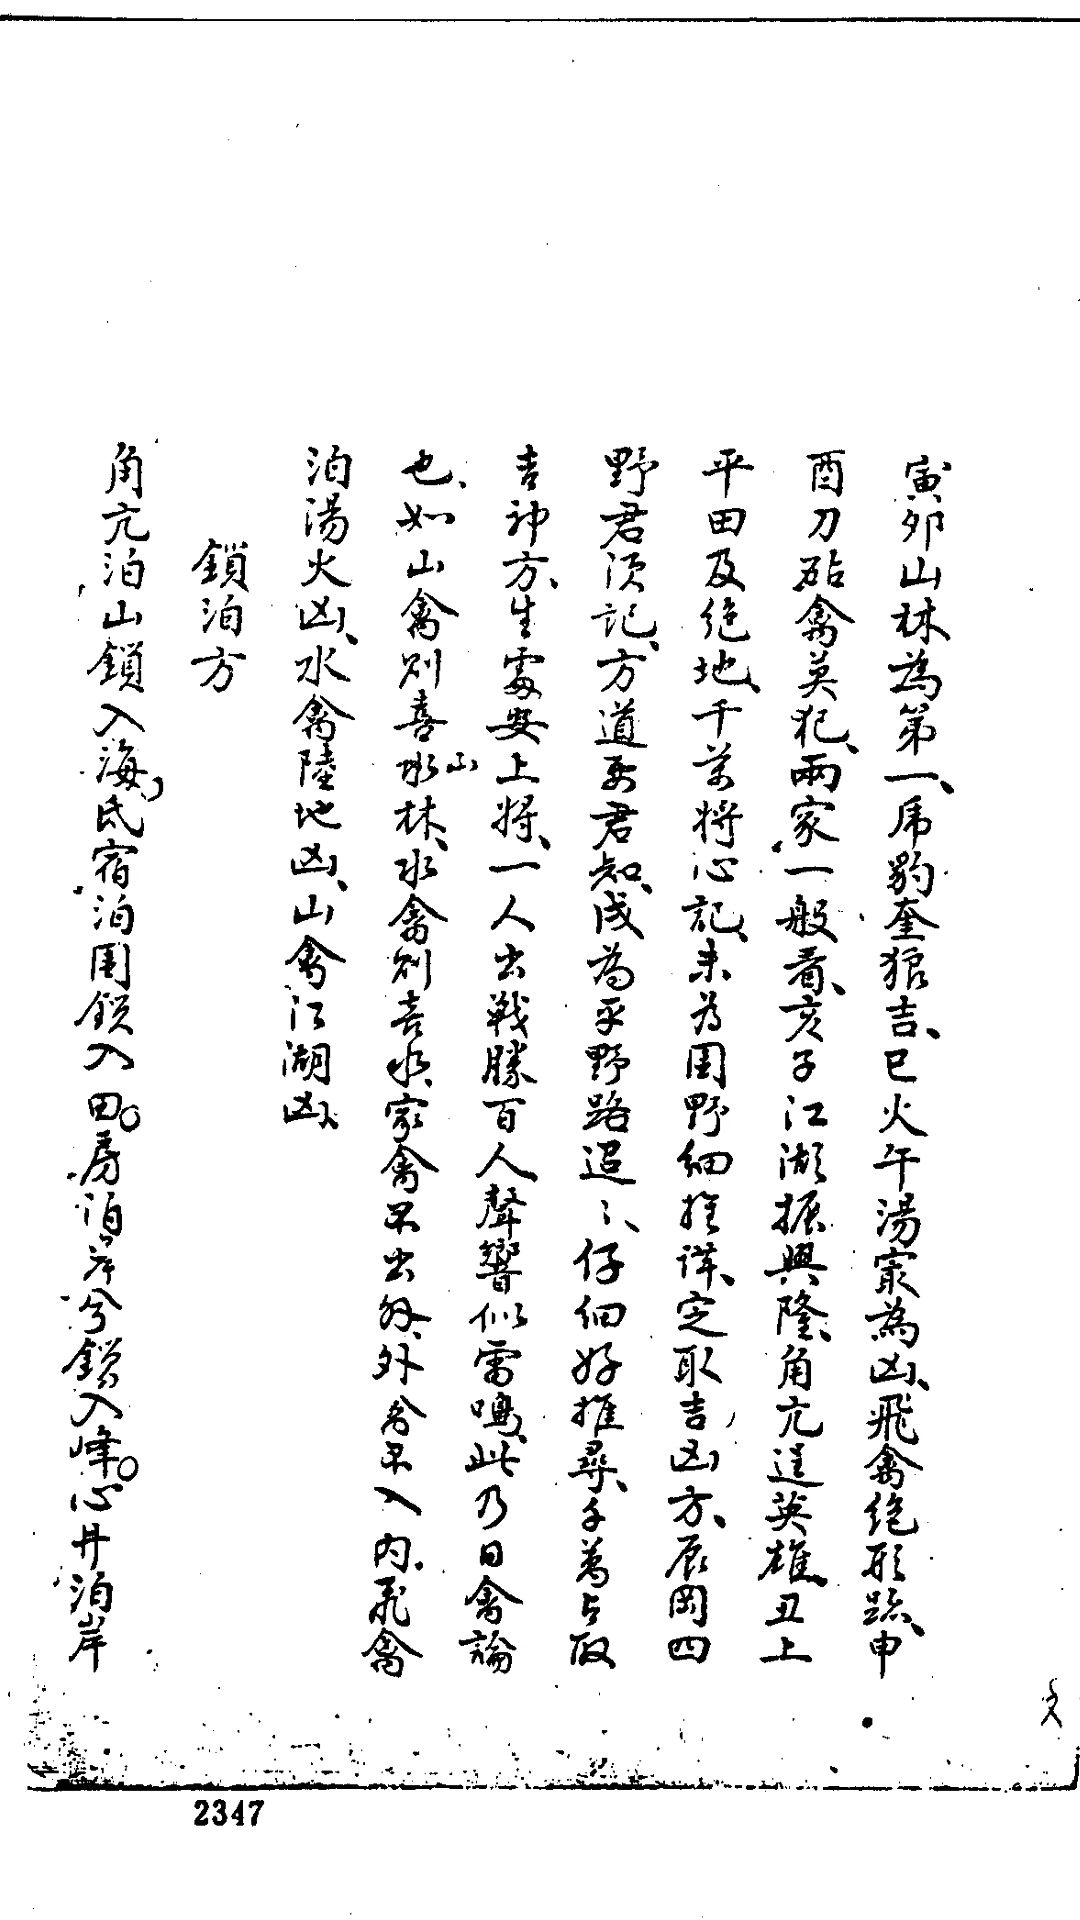 寅夘山林為第一、虎豹奎狼吉、巳火午湯宻為凶、飛禽绝形踪、申
酉刀砧禽莫犯、兩家一般看、亥子江湖振興隆、角亢逞英雄、丑上
平田及绝地、千萬將心記、未为園野细推詳、定取吉凶方、辰岡四
野君须記、方道要君知、戌為平野路迢〻、仔细好推尋、千萬占取
吉神方、生處安上將、一人出戰勝百人、聲響似雷鳴、此乃日禽論
也、如山禽则喜山林、水禽则喜水、家禽不出外、外禽不入内、飛禽
泊湯火凶、水禽陸地凶、山禽江湖凶、
鎖泊方
角亢泊山鎖入海、氐宿泊園鎖入田。房泊岸兮鎖入峰。心井泊岸
2347